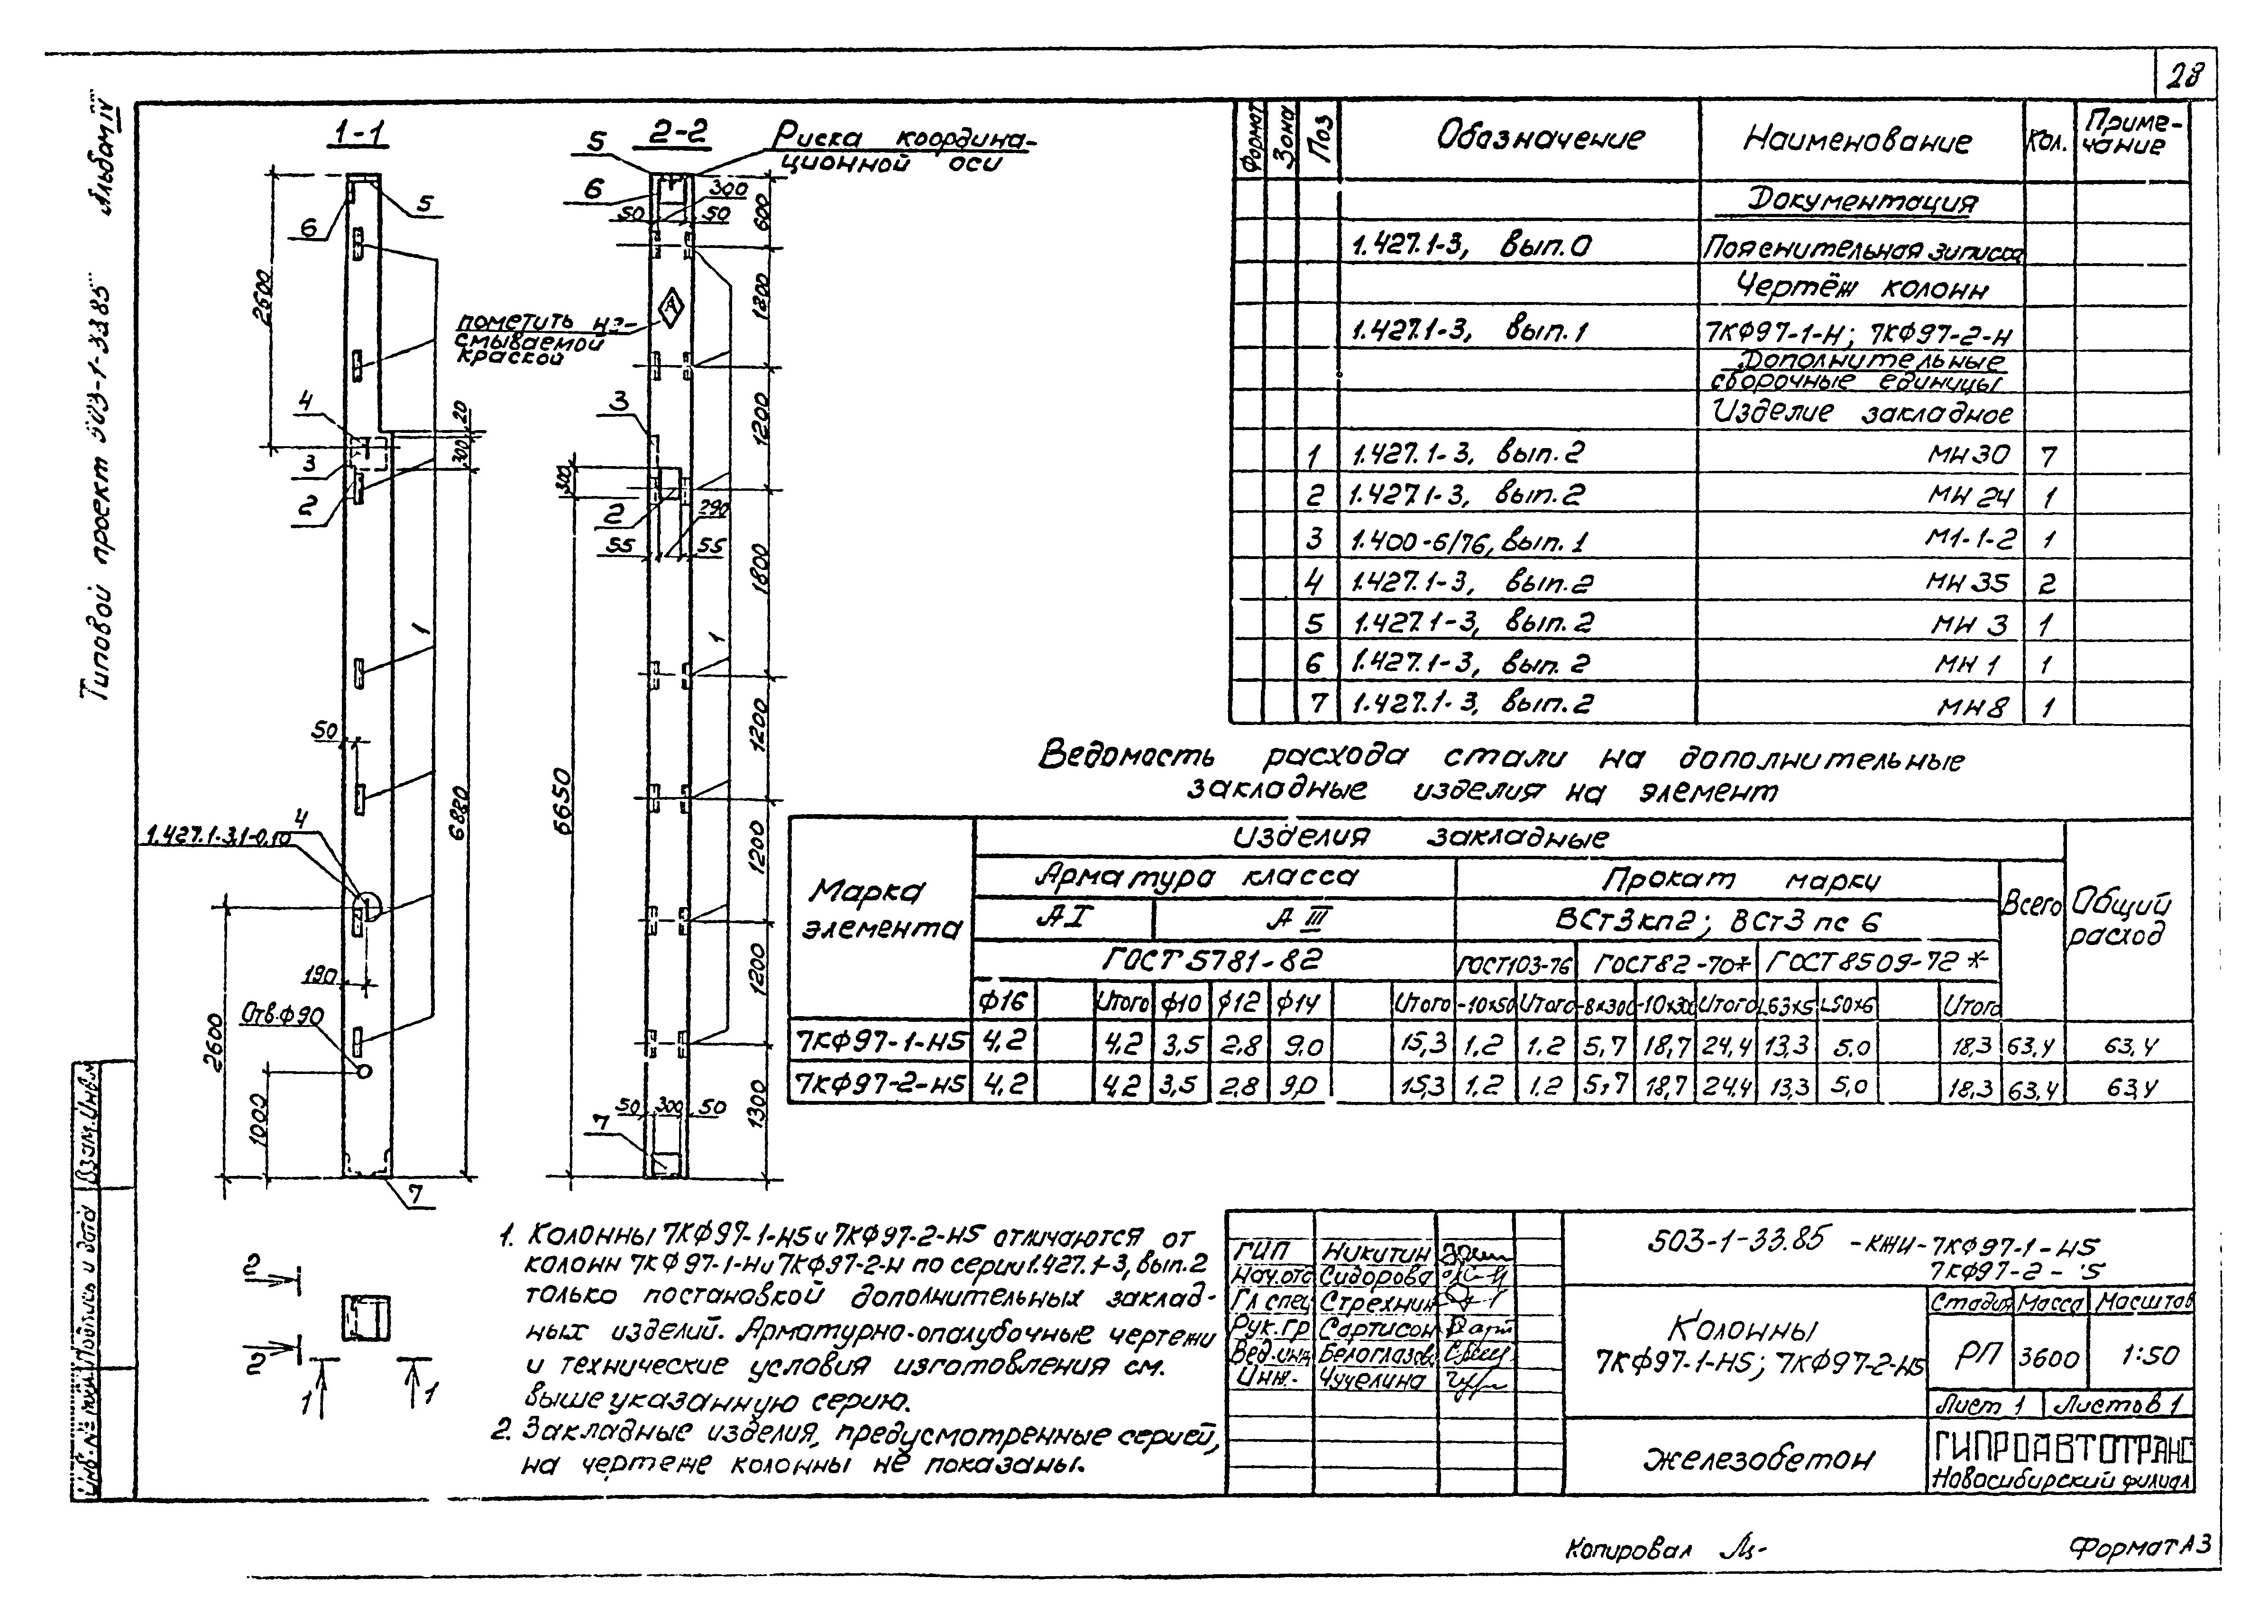 28
Альбом IV
Типовой проект 503-1-33.85
1-1
2-2
Риска координа-
ционной оси
5
6
5
6
300
50
50
600
1200
2600
пометить не-
смываемой
краской
А
4
3
2
20
300
3
300
2
290
55
55
1200
1800
1
1
50
1200
6650
6880
4
1.427.1-3.1-0.10
1200
190
Отв.ф90
2600
1200
1000
50
300
50
7
1300
7
2
2
1
1
Формат
Зона
Поз
Обозначение
Наименование
Кол.
Приме-
чание
Документация
1.427.1-3, вып.0 Пояснительная записка
Чертёж колонн
1.427.1-3, вып.1 7КФ97-1-Н; 7КФ97-2-Н
Дополнительные
сборочные единицы
Изделие закладное
1 1.427.1-3, вып.2 МН30 7
2 1.427.1-3, вып.2 МН 24 1
3 1.400-6/76, вып.1 М1-1-2 1
4 1.427.1-3, вып.2 МН 35 2
5 1.427.1-3, вып.2 МН 3 1
6 1.427.1-3, вып.2 МН 1 1
7 1.427.1-3, вып.2 МН8 1
Ведомость расхода стали на дополнительные
закладные изделия на элемент
Марка
элемента
Изделия закладные
Общий
расход
Арматура класса
Прокат марки
Всего
А I
А III
ВСт3кп2; ВСт3пс6
ГОСТ 5781-82
ГОСТ103-76
ГОСТ82-70*
ГОСТ8509-72*
ф16 Итого ф10 ф12 ф14 Итого -10х50 Итого -8х300 -10х300 Итого L63х5 L50х6 Итого
7КФ97-1-Н5 4,2 4,2 3,5 2,8 9,0 15,3 1,2 1,2 5,7 18,7 24,4 13,3 5,0 18,3 63,4 63,4
7КФ97-2-Н5 4,2 4,2 3,5 2,8 9,0 15,3 1,2 1,2 5,7 18,7 24,4 13,3 5,0 18,3 63,4 63,4
1. Колонны 7КФ97-1-Н5 и 7КФ97-2-Н5 отличаются от
колонн 7КФ97-1-Н и 7КФ97-2-Н по серии 1.427.1-3, вып.2
только постановкой дополнительных заклад-
ных изделий. Арматурно-опалубочные чертежи
и технические условия изготовления см.
выше указанную серию.
2. Закладные изделия, предусмотренные серией,
на чертеже колонны не показаны.
ГИП Никитин
Нач.отд Сидорова
Гл спец Стрехнин
Рук.гр Сартисон
Вед.инж Белоглазов
Инж. Чучелина
503-1-33.85 -КЖИ-7КФ97-1-Н5
7КФ97-2- 5
Колонны
7КФ97-1-Н5; 7КФ97-2-Н5
Стадия Масса Масштаб
РП 3600 1:50
Лист 1 Листов 1
Железобетон
ГИПРОАВТОТРАНС
Новосибирский филиал
Взам.Инв.№
Подпись и дата
Инв.№ подл.
Копировал
Формат А3